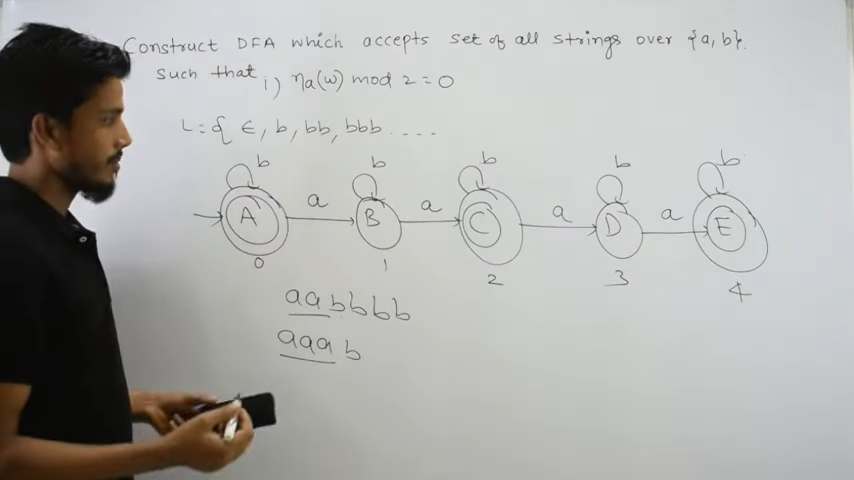 Construct DFA which accepts set of all strings over {a, b}.
such that i) na(w) mod 2 = 0
L = { ∈, b, bb, bbb ....
b b b b b
A a B a C a D a E
0 1 2 3 4
aabbbb
aaab